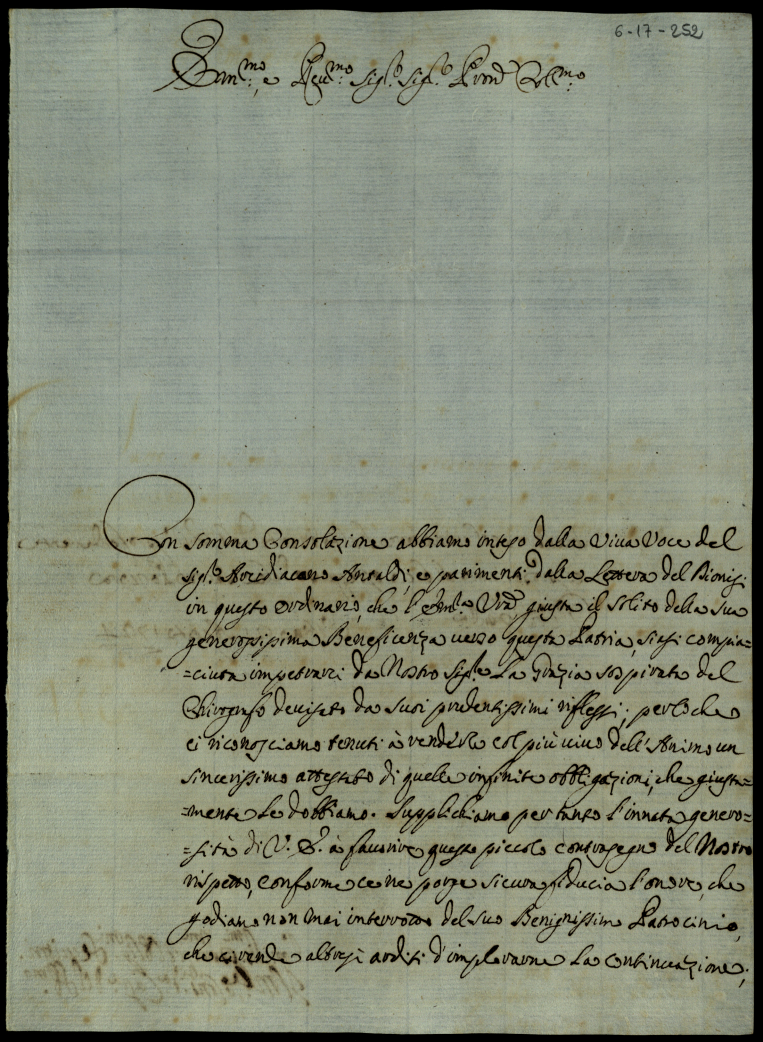 6-17-252
Em.mo e Rev.mo Sig.re Sig.re Pron. Col.mo
Con somma Consolazione abbiamo inteso dalla Viva Voce del
Sig.r Arcidiacono Antaldi, e parimenti dalla Lettera del Bionigi
in questo ordinario, che l'Em.za Vrã, giusta il solito della sua
generosissima Beneficenza verso questa Patria, siasi compia=
=ciuta impetrarci da Nostro Sig.re La Grazia sospirata del
Chirografo deviseto da suoi prudentissimi riflessi; perloche
ci riconosciamo tenuti à renderle col più vivo dell'Animo un
sincerissimo attestato di quelle infinite obbligazioni, che giusta=
=mente Le dobbiamo. Supplichiamo pertanto l'innata genero=
=sità di V. E. à favorire questo piccolo contrasegno del Nostro
rispetto, conforme ce ne porge sicura fiducia l'onore, che
godiamo non mai interrotto del suo Benignissimo Patrocinio,
che ci rende altresì arditi d'implorarne La continuazione;